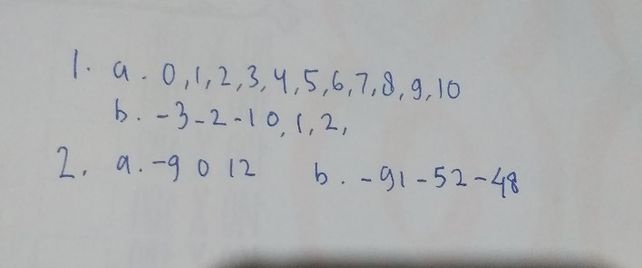 1. a. 0,1,2,3,4,5,6,7,8,9,10
b. -3-2-10,1,2,
2. a. -9 0 12 b. -91-52-48